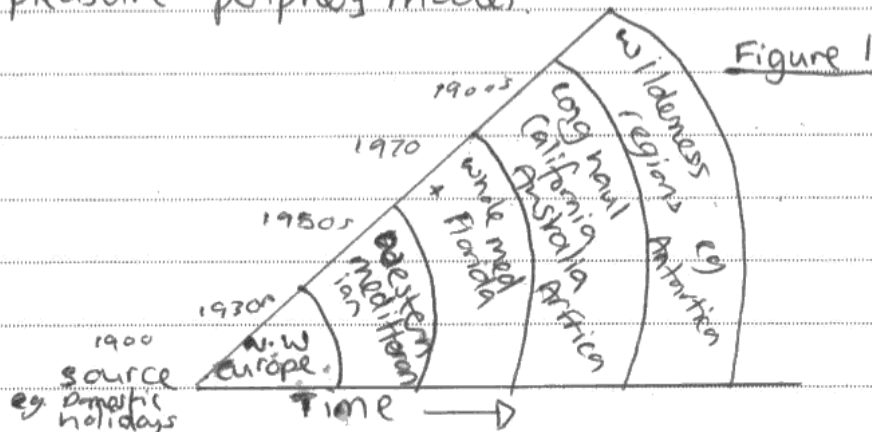 pleasure periphery model.
Figure 1
1900s
1970
1950s
1930s
1900
source
eg. Domestic
holidays
N.W
europe.
western
meditteran
ian
whole med
+
Florida
Long haul
California
Australia
Africa
Wilderness
regions eg
Antartica
Time